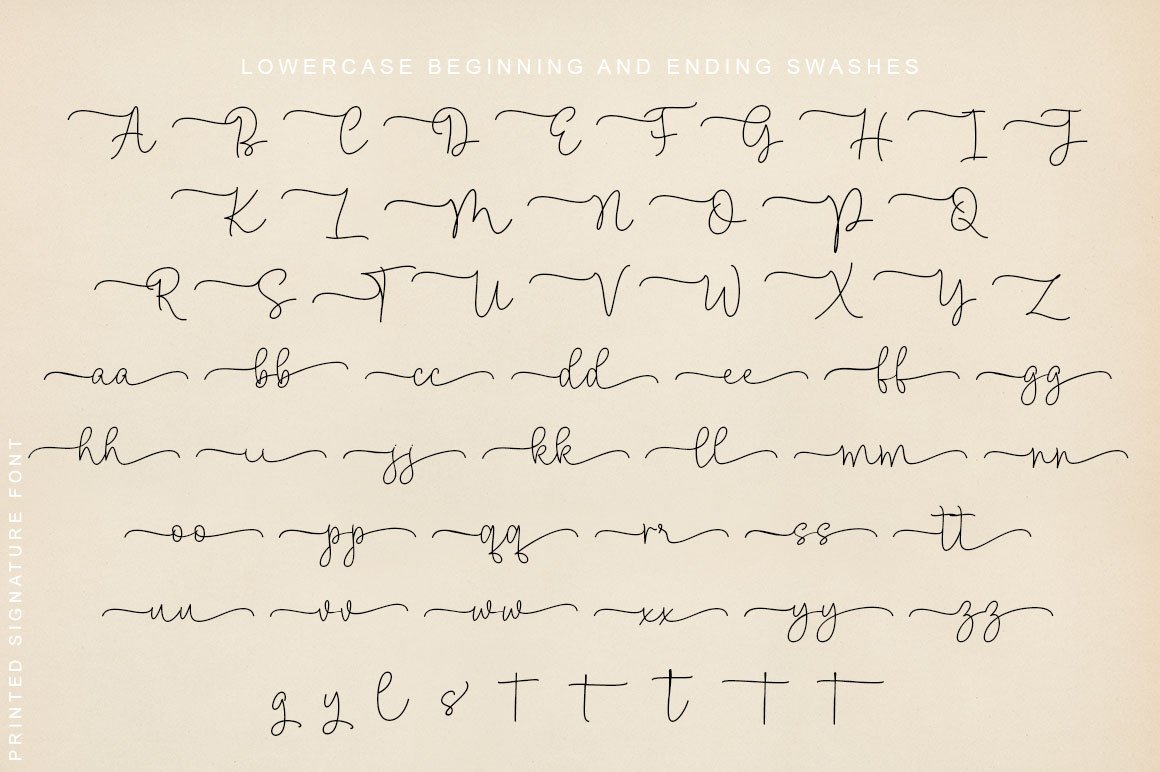 LOWERCASE BEGINNING AND ENDING SWASHES
A B C D E F G H I J
K L M N O P Q
R S T U V W X Y Z
aa bb cc dd ee ff gg
hh ii jj kk ll mm nn
oo pp qq rr ss tt
uu vv ww xx yy zz
g y l s t t t t t
PRINTED SIGNATURE FONT